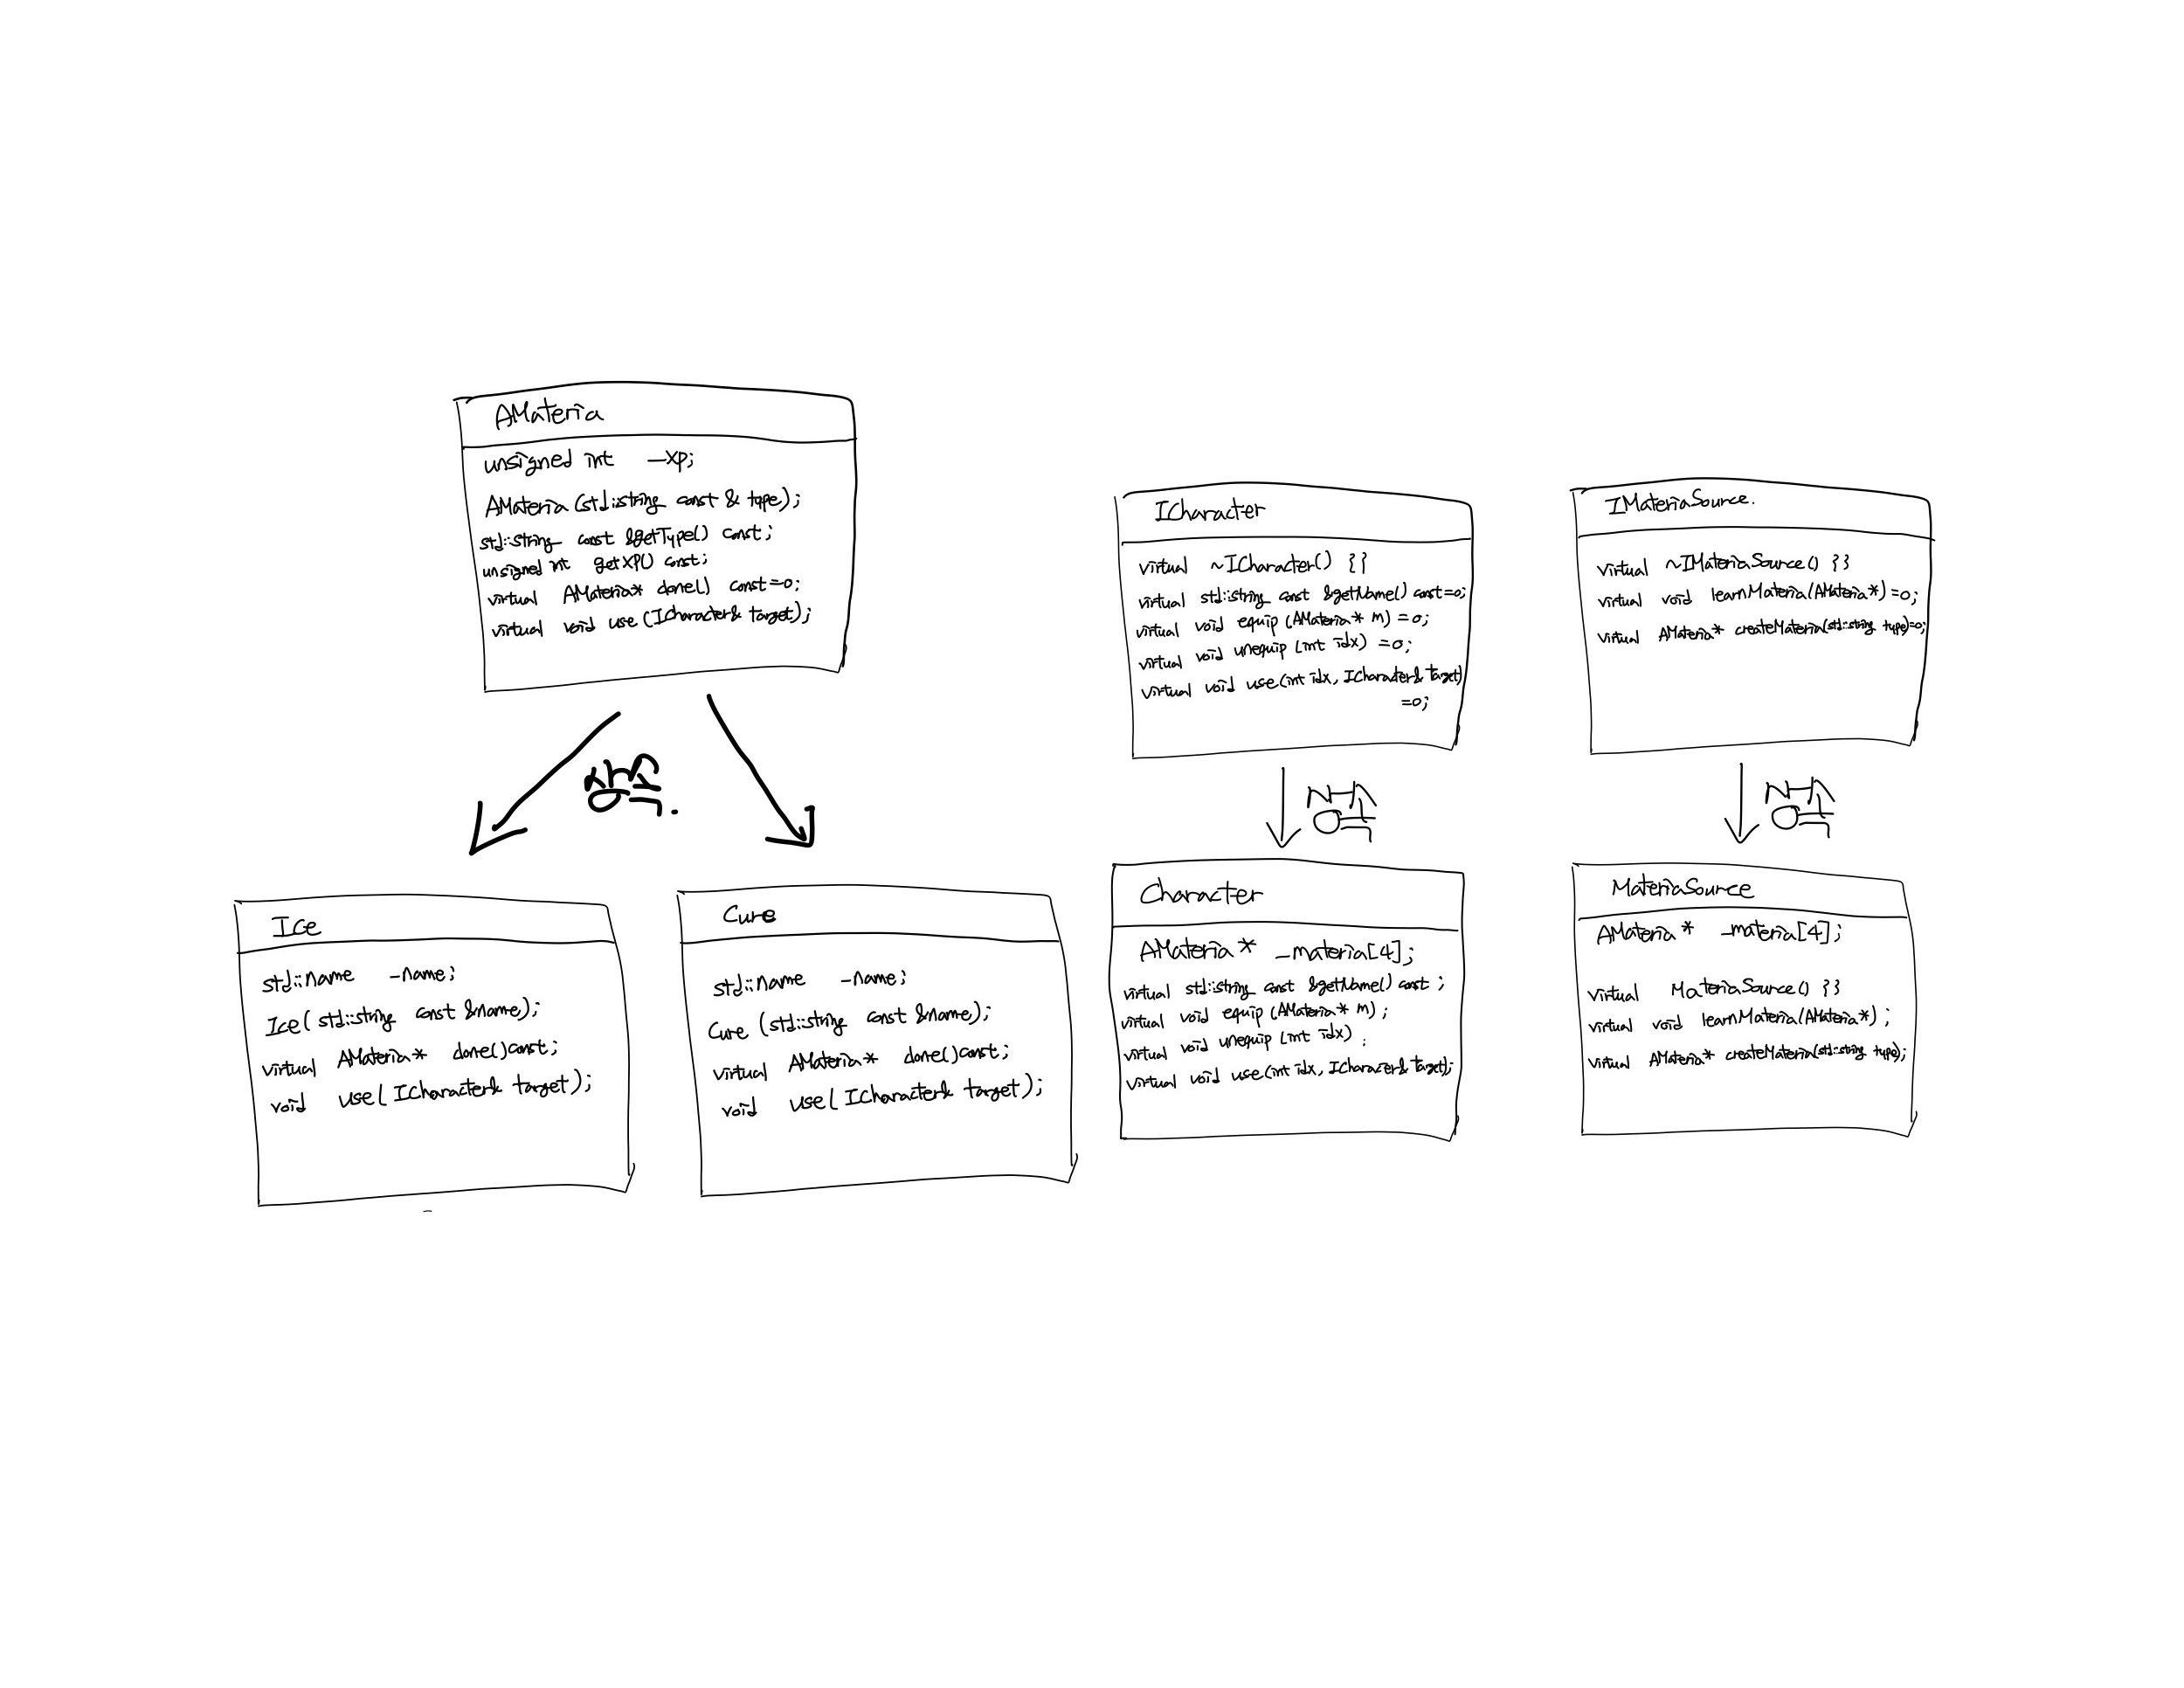 AMateria
unsigned int _xp;
AMateria (std::string const & type);
std::string const &getType() const;
unsigned int getXP() const;
virtual AMateria* clone() const=0;
virtual void use (ICharacter& target);
상속.
Ice
std::name _name;
Ice( std::string const &name);
virtual AMateria* clone()const;
void use( ICharacter& target);
Cure
std::name _name;
Cure (std::string const &name);
virtual AMateria* clone()const;
void use( ICharacter& target);
ICharacter
virtual ~ICharacter() {}
virtual std::string const &getName() const=0;
virtual void equip (AMateria* m) = 0;
virtual void unequip (int idx) =0;
virtual void use(int idx, ICharacter& target)
=0;
상속
Character
AMateria* _materia[4];
virtual std::string const &getName() const ;
virtual void equip (AMateria* m) ;
virtual void unequip (int idx) ;
virtual void use(int idx, ICharacter& target);
IMateriaSource.
virtual ~IMateriaSource() {}
virtual void learnMateria(AMateria*) =0;
virtual AMateria* createMateria(std::string type)=0;
상속
MateriaSource
AMateria* _materia[4];
virtual MateriaSource() {}
virtual void learnMateria(AMateria*) ;
virtual AMateria* createMateria(std::string type);